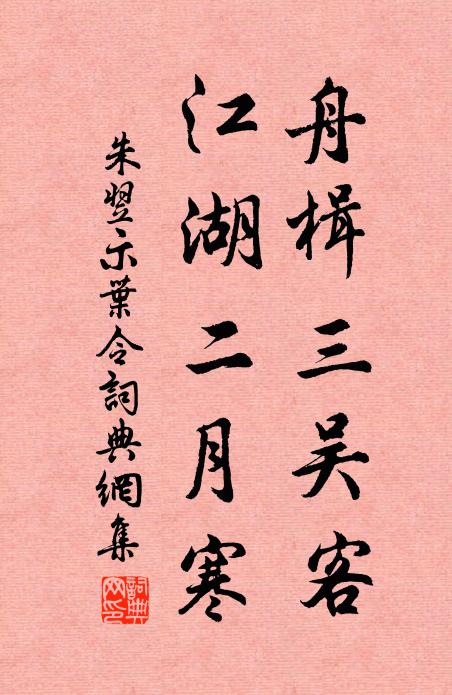 舟楫三吴客
江湖二月寒
朱翌示葉令詞典網集
詞典網印